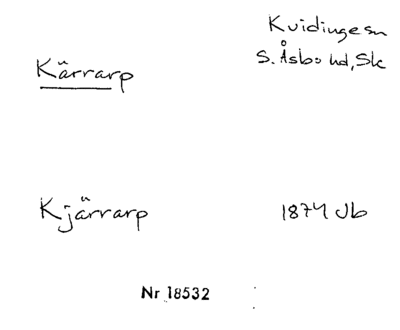 Kvidinge sn
Kärrarp
S. Åsbo hd, Sk
Kjärrarp
1874 Jb
Nr 18532